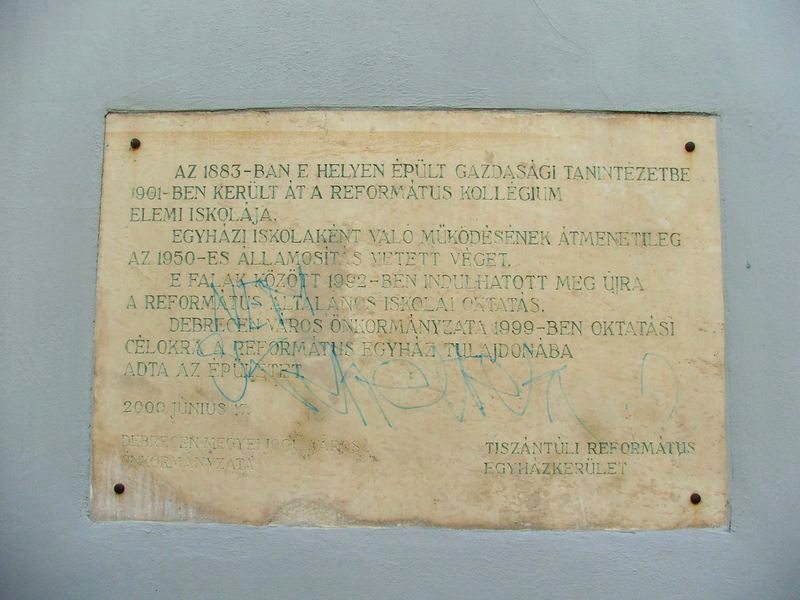 AZ 1883-BAN E HELYEN ÉPÜLT GAZDASÁGI TANINTÉZETBE
1901-BEN KERÜLT ÁT A REFORMÁTUS KOLLÉGIUM
ELEMI ISKOLÁJA.
EGYHÁZI ISKOLAKÉNT VALÓ MŰKÖDÉSÉNEK ÁTMENETILEG
AZ 1950-ES ÁLLAMOSÍTÁS VETETT VÉGET.
E FALAK KÖZÖTT 1992-BEN INDULHATOTT MEG ÚJRA
A REFORMÁTUS ÁLTALÁNOS ISKOLAI OKTATÁS.
DEBRECEN VÁROS ÖNKORMÁNYZATA 1999-BEN OKTATÁSI
CÉLOKRA A REFORMÁTUS EGYHÁZ TULAJDONÁBA
ADTA AZ ÉPÜLETET.
2000. JÚNIUS 17.
DEBRECEN MEGYEI JOGÚ VÁROS
ÖNKORMÁNYZATA
TISZÁNTÚLI REFORMÁTUS
EGYHÁZKERÜLET